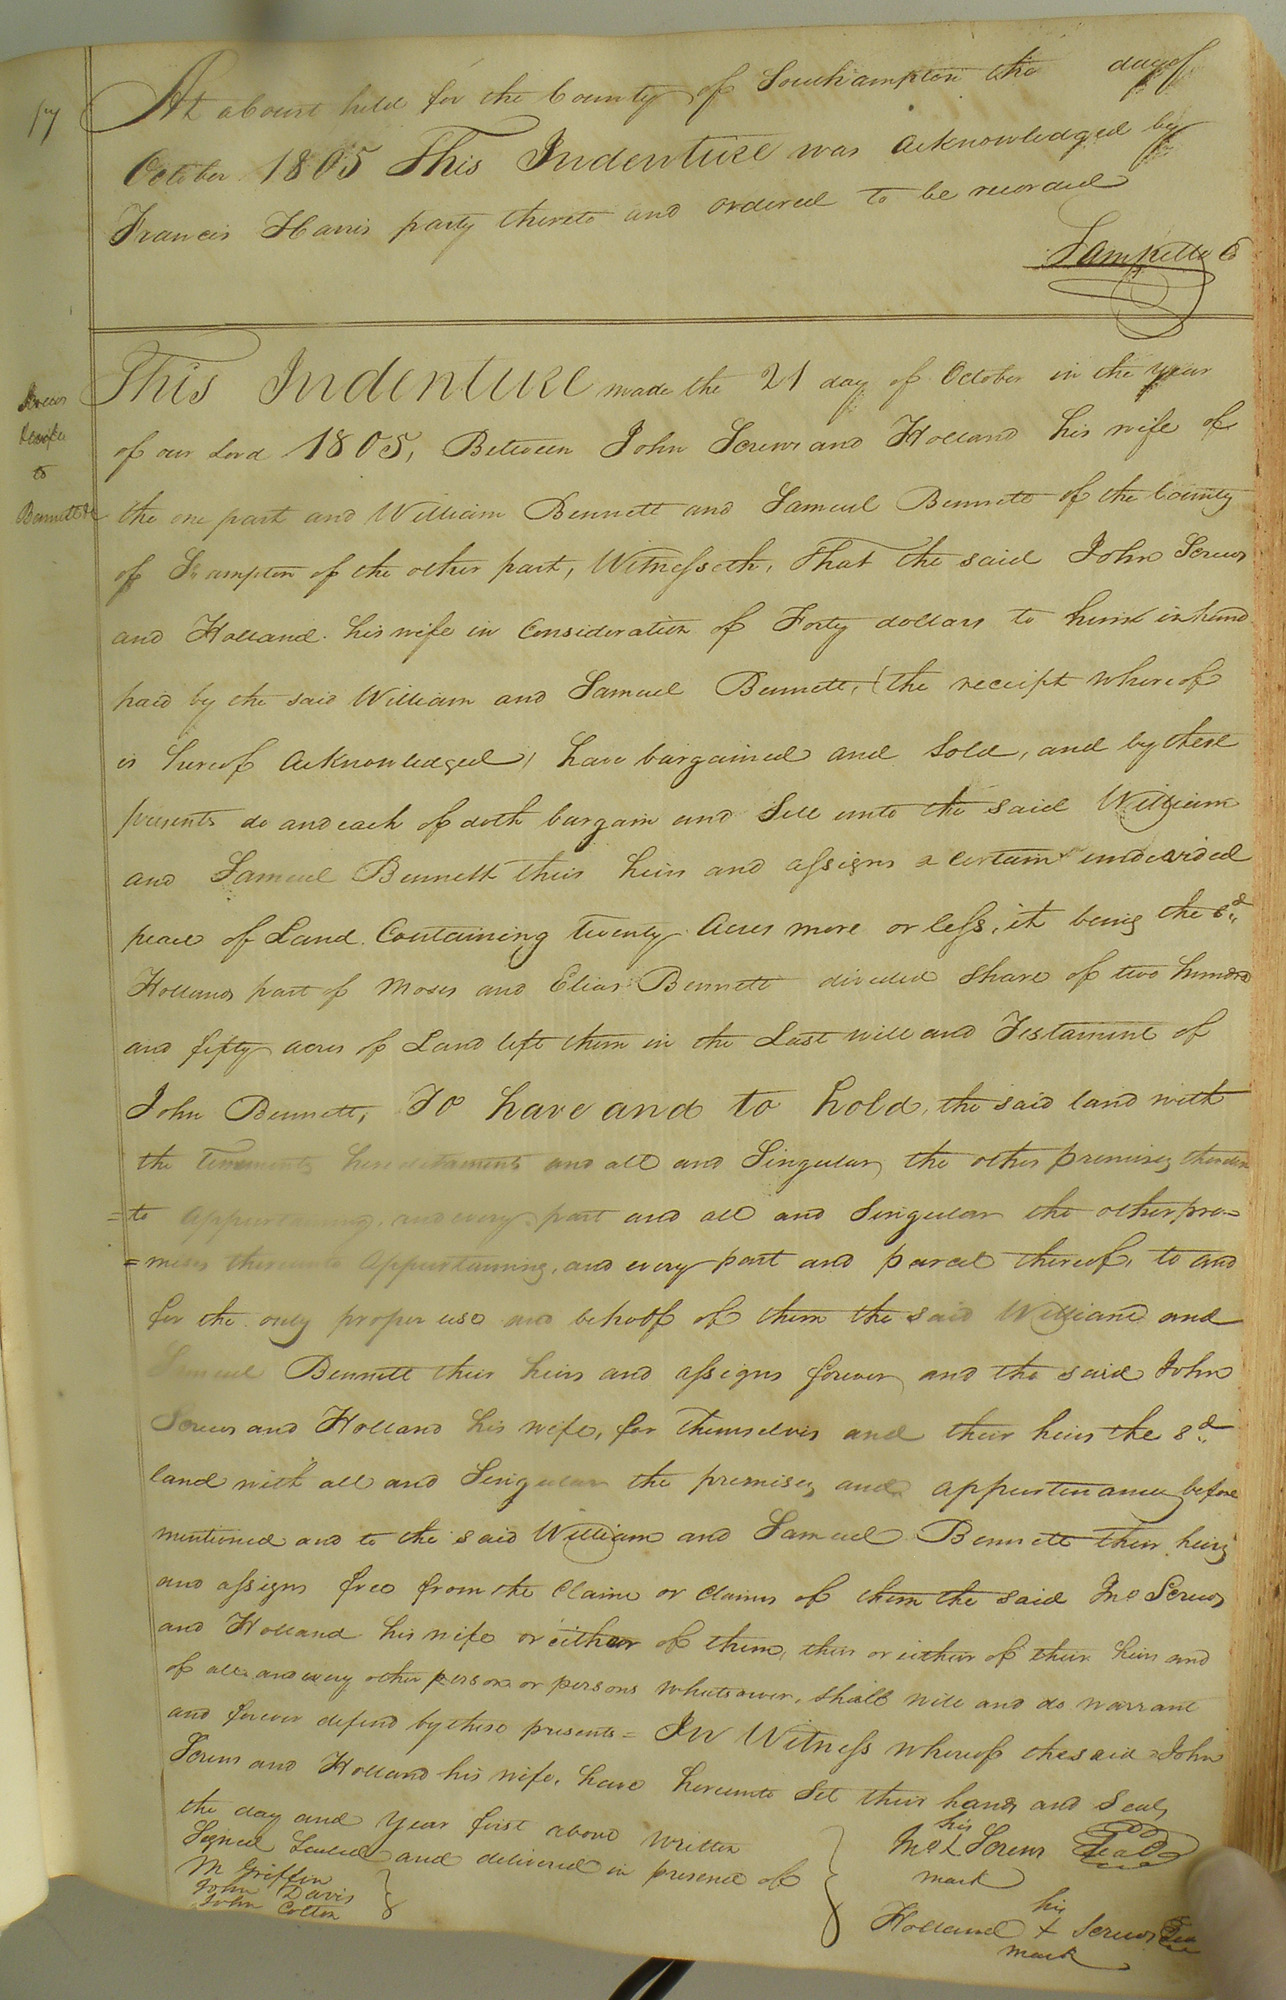 At a Court held for the County of Southampton the day of
October 1805 This Indenture was acknowledged by
Francis Harris party thereto and ordered to be recorded
Saml Kello C
Screws
& wife
to
Bennett &c
This Indenture made the 21 day of October in the year
of our Lord 1805, Between John Screws and Holland his wife of
the one part and William Bennett and Samuel Bennett of the County
of Sampton of the other part, Witnesseth, That the said John Screws
and Holland his wife in Consideration of Forty dollars to him in hand
paid by the said William and Samuel Bennett, (the receipt whereof
is hereof acknowledged) have bargained and Sold, and by these
presents do and each of doth bargain and Sell unto the said William
and Samuel Bennett their heirs and assigns a certain undevided
peace of Land Containing twenty acres more or less, it being the sd.
Hollands part of Moses and Elias Bennett divided Share of two hundred
and fifty acres of Land left them in the Last will and Testament of
John Bennett, To have and to hold, the said land with
the tenements hereditaments and all and Singular the other premises thereun
=to appertaining, and every part and all and Singular the other pre=
=mises thereunto appertaining, and every part and parcel thereof, to and
for the only proper use and behoof of them the said William and
Samuel Bennett their heirs and assigns forever and the said John
Screws and Holland his wife, for themselves and their heirs the sd.
land with all and Singular the premises and appurtenances before
mentioned and to the said William and Samuel Bennett their heirs
and assigns free from the Claim or claims of them the said Jno Screws
and Holland his wife or either of them, their or either of their heirs and
of all and every other person or persons whatsoever, shall will and do warrant
and forever defend by these presents = In Witness whereof the said John
Screws and Holland his wife, have hereunto Set their hands and Seals
the day and year first above written
Signed Sealed and delivered in presence of
M Griffin
John Davis
John Cotton
his
Jno X Screws Seal
mark
his
Holland + Screws Seal
mark